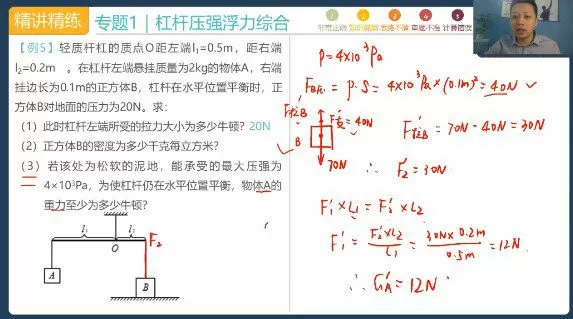 精讲精练 专题1 | 杠杆压强浮力综合
非常正确 知识漏洞 思路不清 审题不准 计算错误
【例5】轻质杆杠的质点O距左端l₁=0.5m，距右端
l₂=0.2m 。在杠杆左端悬挂质量为2kg的物体A，右端
挂边长为0.1m的正方体B，杠杆在水平位置平衡时，正
方体B对地面的压力为20N。求：
（1）此时杠杆左端所受的拉力大小为多少牛顿？ 20N
（2）正方体B的密度为多少千克每立方米？
（3）若该处为松软的泥地，能承受的最大压强为
4×10³Pa，为使杠杆仍在水平位置平衡，物体A的
重力至少为多少牛顿？
l₁ l₂
O F₂
A B
P=4×10³Pa
F压 = P·S = 4×10³Pa×(0.1m)²=40N
F拉B F支=40N
B
70N
F'拉B = 70N-40N=30N
∴ F₂'=30N
F₁'×L₁=F₂'×L₂
F₁'=F₂'×L₂/L₁=30N×0.2m/0.5m=12N
∴ G'A=12N